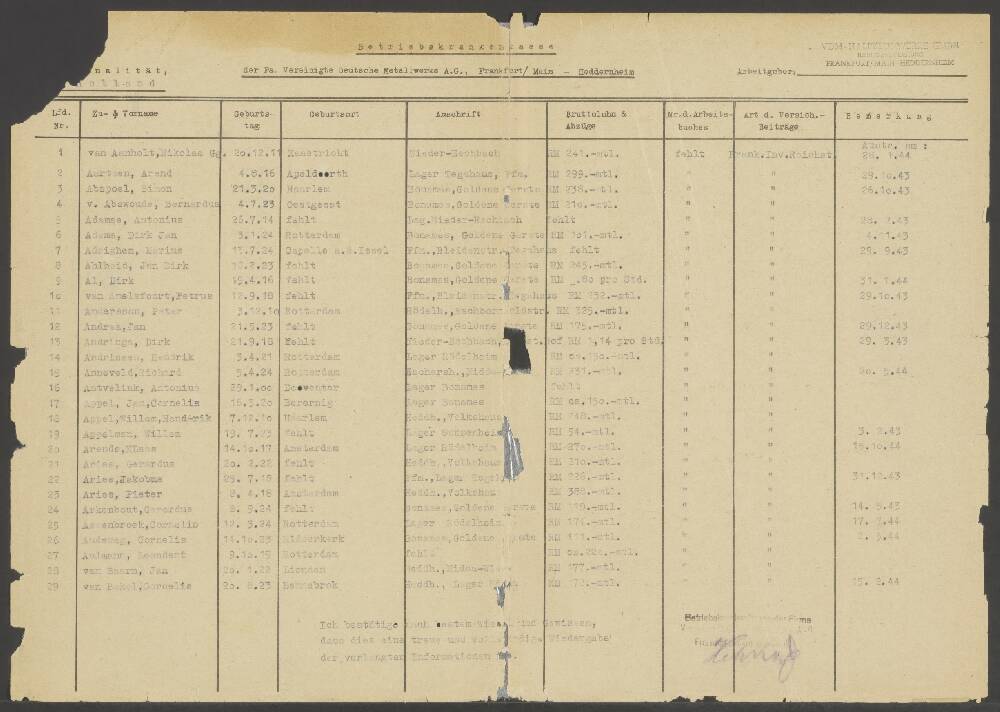 Betriebskrankenkasse
VDM-HALBZEUGWERKE GMBH
FRANKFURT/MAIN-HEDDERNHEIM
nalität,
Holland
der Fa. Vereinigte Deutsche Metallwerke A.G., Frankfurt/ Main - Heddernheim
Arbeitgeber,
Lfd. Nr. Zu- & Vorname Geburts-tag Geburtsort Anschrift Bruttolohn & Abzüge Nr.d.Arbeits-buches Art d. Versich.-Beiträge Bemerkung
Austr. am :
1 van Aanholt,Nikolas Gg. 2o.12.11 Maastricht Nieder-Eschbach RM 241.-mtl. fehlt Krank.Inv.Reichst. 28. 1.44
2 Aartsen, Arend 4.8.16 Apeldoorth Lager Tegahaus, Ffm. RM 299.-mtl. " " 29.1o.43
3 Abspoel, Simon 21.3.2o Haarlem Bonames,Goldene Gerste RM 238.-mtl. " " 26.1o.43
4 v. Abswoude, Bernardus 4.7.23 Oestgeest Bonames,Goldene Gerste RM 21o.-mtl. " "
5 Adamse, Antonius 26.7.14 fehlt Lag.Nieder-Eschbach fehlt " " 28. .43
6 Adams, Dirk Jan 3.1.24 Rotterdam Bonames, Goldene Gerste RM 191.-mtl. " " 4. .43
7 Adrighem, Marius 13.7.24 Capelle a.d.Issel Ffm.,Bleidenstr. fehlt " " 29. 9.43
8 Ahlheid, Jan Dirk .2.23 fehlt Bonames,Goldene Gerste RM 245.-mtl. " "
9 Al, Dirk 19.4.16 fehlt Bonames,Goldene Gerste RM .8o pro Std. " " 31. 1.44
1o van Amelsfoort,Petrus 12.9.18 fehlt Ffm.,Bleidenstr. Tegahaus RM 232.-mtl. " " 29.1o.43
11 Anderson, Peter 3.12.1o Rotterdam Rödelh., RM 325.-mtl. " "
12 Andrea,Jan 21.5.23 fehlt Bonames,Goldene Gerste RM 175.-mtl. " " 29.12.43
13 Andringa, Dirk 21.9.18 fehlt Nieder-Eschbach, RM 1,14 pro Std. " " 29. 3.43
14 Andriesen, Hendrik 3.4.21 Rotterdam Lager Rödelheim RM ca. 15o.-mtl. " "
15 Anneveld,Richard 9.4.24 Rotterdam RM 231.-mtl. " " 2o. 5.44
16 Antvelink, Antonius 29.1.oo Deventer Lager Bonames fehlt " "
17 Appel, Jan,Cornelis 16.3.2o Lager Bonames RM ca.15o.-mtl. " "
18 Appel,Willem,Hendrik 7.12.1o Haarlem Heddh.,Volkshaus RM 248.-mtl. " "
19 Appelman, Willem 19. 7.23 fehlt Lager RM 54.-mtl. " " 3. 2.43
2o Arends,Klaas 14.1o.17 Amsterdam Lager Rödelheim RM 27o.-mtl. " " 16.1o.44
21 Aries, Gerardus 2o. 2.22 fehlt Heddh.,Volkshaus RM 31o.-mtl. " "
22 Aries,Jakobus 29. 7.18 fehlt Ffm.,Lager RM 228.-mtl. " " 31.12.43
23 Aries, Pieter 8. 4.18 Amsterdam Heddh.,Volkshau RM 388.-mtl. " "
24 Arkenbout,Gerardus 2. 9.24 fehlt Bonames,Goldene Gerste RM 119.-mtl. " " 14. 5.43
25 Assenbroek,Cornelis 12. 3.24 Rotterdam Lager Rödelheim RM 174.-mtl. " " 17. .44
26 Cornelis 14.1o.23 Ridderkerk Bonames,Goldene Gerste RM 111.-mtl. " " 2. 5.44
27 Leendert 9.1o.19 Rotterdam fehlt RM ca.22o.-mtl. " "
28 van Baarn, Jan 2o. 1.22 Heddh., RM 177.-mtl. " "
29 van Bakel,Cornelis 2o. 8.23 Heddh., Lager RM 72.-mtl. " " 15. 2.44
Ich bestätige nach bestem Wissen und Gewissen,
dass dies eine treue und vollständige Wiedergabe
der verlangten Informationen ist.
Betriebskrankenkasse der Firma